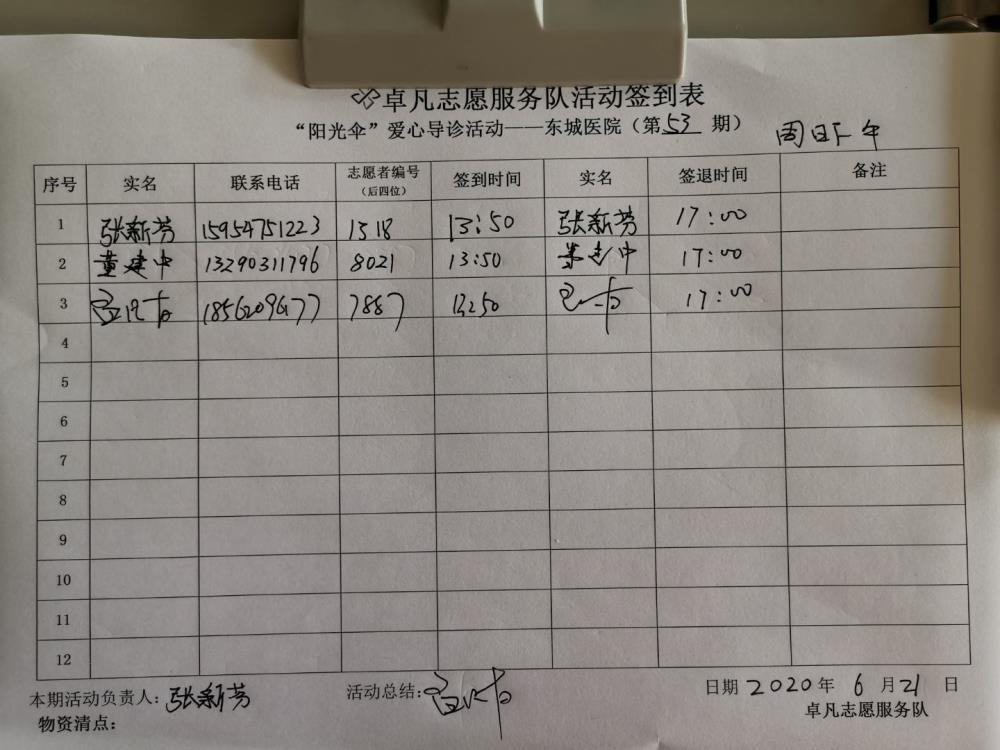 卓凡志愿服务队活动签到表
“阳光伞”爱心导诊活动——东城医院（第53期）
周日下午
序号 实名 联系电话 志愿者编号（后四位） 签到时间 实名 签退时间 备注
1 张新芳 15954751223 1518 13:50 张新芳 17:00
2 董建中 13290311796 8021 13:50 17:00
3 7887 17:00
4
5
6
7
8
9
10
11
12
本期活动负责人：张新芳 活动总结： 日期 2020年 6月21日
物资清点： 卓凡志愿服务队